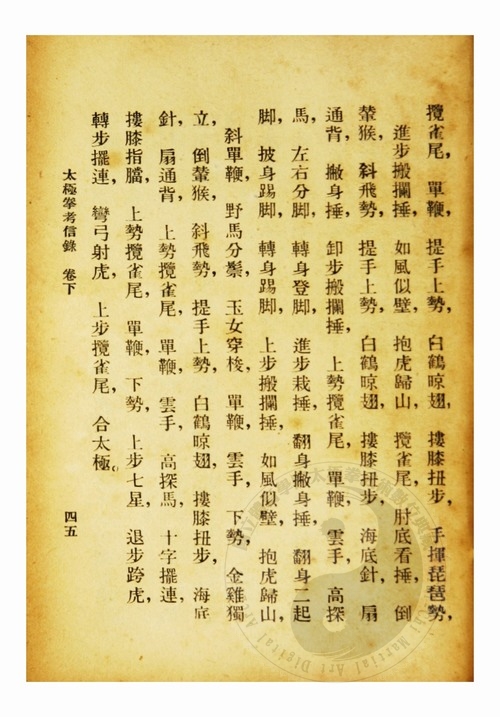 攬雀尾，單鞭，提手上勢，白鶴晾翅，摟膝扭步，手揮琵琶勢，
進步搬攔捶，如風似壁，抱虎歸山，攬雀尾，肘底看捶，倒
輦猴，斜飛勢，提手上勢，白鶴晾翅，摟膝扭步，海底針，扇
通背，撇身捶，卸步搬攔捶，上勢攬雀尾，單鞭，雲手，高探
馬，左右分脚，轉身登脚，進步栽捶，翻身撇身捶，翻身二起
脚，披身踢脚，轉身踢脚，上步搬攔捶，如風似壁，抱虎歸山，
斜單鞭，野馬分鬃，玉女穿梭，單鞭，雲手，下勢，金雞獨
立，倒輦猴，斜飛勢，提手上勢，白鶴晾翅，摟膝扭步，海底
針，扇通背，上勢攬雀尾，單鞭，雲手，高探馬，十字擺連，
摟膝指膯，上勢攬雀尾，單鞭，下勢，上步七星，退步跨虎，
轉步擺連，彎弓射虎，上步攬雀尾，合太極。
太極拳考信錄 卷下
四五